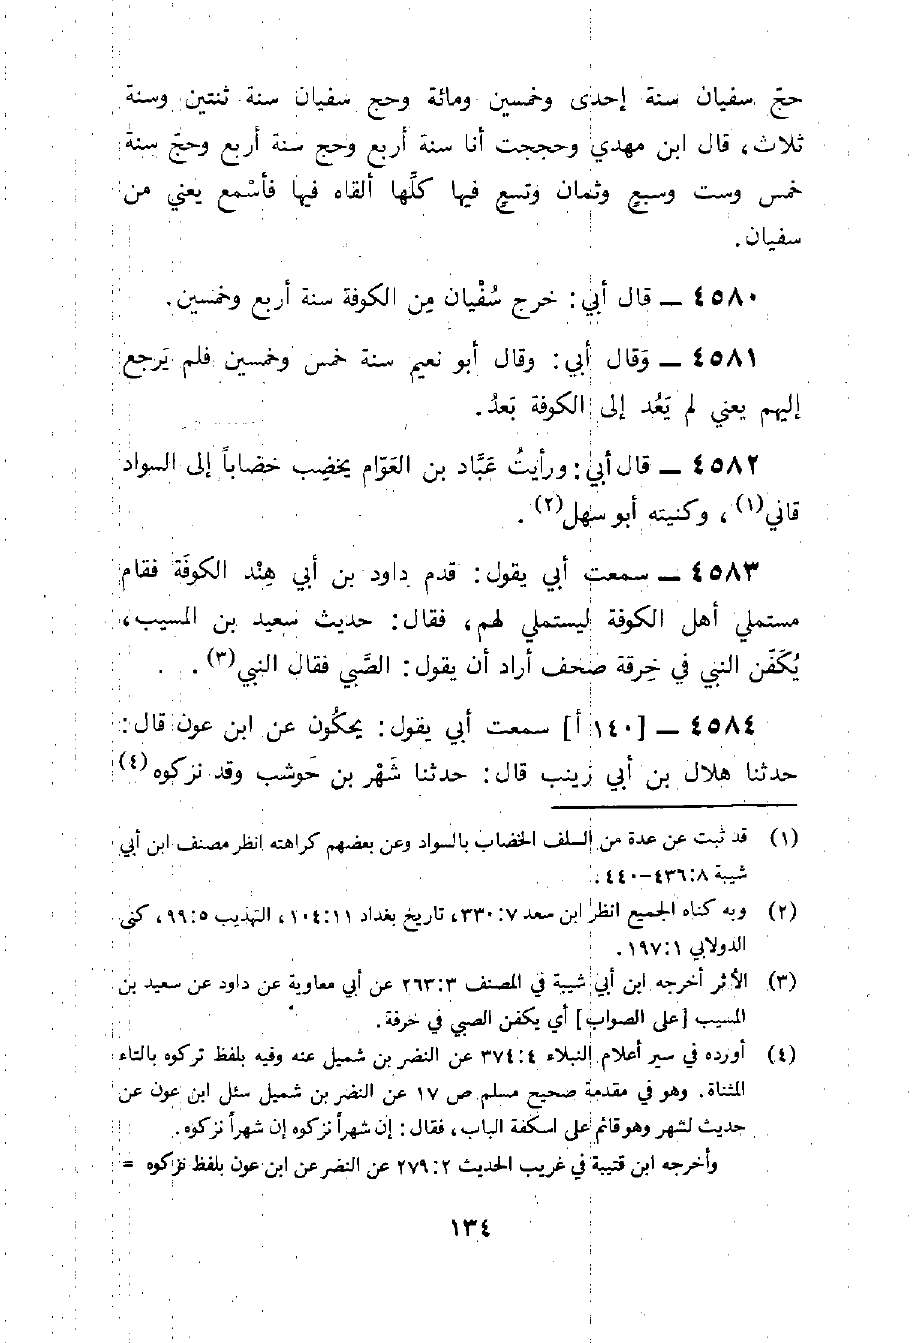 حجّ سفيان سنة إحدى وخمسين ومائة وحج سفيان سنة ثنتين وسنة
ثلاث، قال ابن مهدي وحججت أنا سنة أربع وحج سنة أربع وحجّ سنة
خمس وست وسبعٍ وثمان وتسعٍ فيها كلِّها ألقاه فيها فأسْمع يعني من
سفيان.
٤٥٨٠ ــ قال أبي: خرج سُفْيان مِن الكوفة سنة أربع وخمسين.
٤٥٨١ ــ وَقال أبي: وقال أبو نعيم سنة خمس وخمسين فلم يَرجع
إليهم يعني لم يَعُد إلى الكوفة بَعدُ.
٤٥٨٢ ــ قال أبي: ورأيتُ عَبَّاد بن العَوّام يخضِب خضاباً إلى السواد
قاني(١)، وكنيته أبو سهل(٢).
٤٥٨٣ ــ سمعت أبي يقول: قدم داود بن أبي هِنْد الكوفَة فقام
مستملي أهل الكوفة ليستملي لهم، فقال: حديث سعيد بن المسيب،
يُكَفّن النبي في خِرقة صحف أراد أن يقول: الصَّبي فقال النبي(٣).
٤٥٨٤ ــ [١٤٠ أ] سمعت أبي يقول: يحكُون عن ابن عون قال:
حدثنا هلال بن أبي زينب قال: حدثنا شَهْر بن حَوشب وقد نزكوه(٤)
(١) قد ثبت عن عدة من السلف الخضاب بالسواد وعن بعضهم كراهته انظر مصنف ابن أبي
شيبة ٤٣٦:٨-٤٤٠.
(٢) وبه كناه الجميع انظر ابن سعد ٣٣٠:٧، تاريخ بغداد ١٠٤:١١، التهذيب ٩٩:٥، كنى
الدولابي ١٩٧:١.
(٣) الأثر أخرجه ابن أبي شيبة في المصنف ٢٦٣:٣ عن أبي معاوية عن داود عن سعيد بن
المسيب [على الصواب] أي يكفن الصبي في خرقة.
(٤) أورده في سير أعلام النبلاء ٣٧٤:٤ عن النضر بن شميل عنه وفيه بلفظ تركوه بالتاء
المثناة. وهو في مقدمة صحيح مسلم ص ١٧ عن النضر بن شميل سئل ابن عون عن
حديث لشهر وهو قائم على اسكفة الباب، فقال: إن شهراً نزكوه إن شهراً نزكوه.
وأخرجه ابن قتيبة في غريب الحديث ٢٧٩:٢ عن النضر عن ابن عون بلفظ نزكوه =
١٣٤